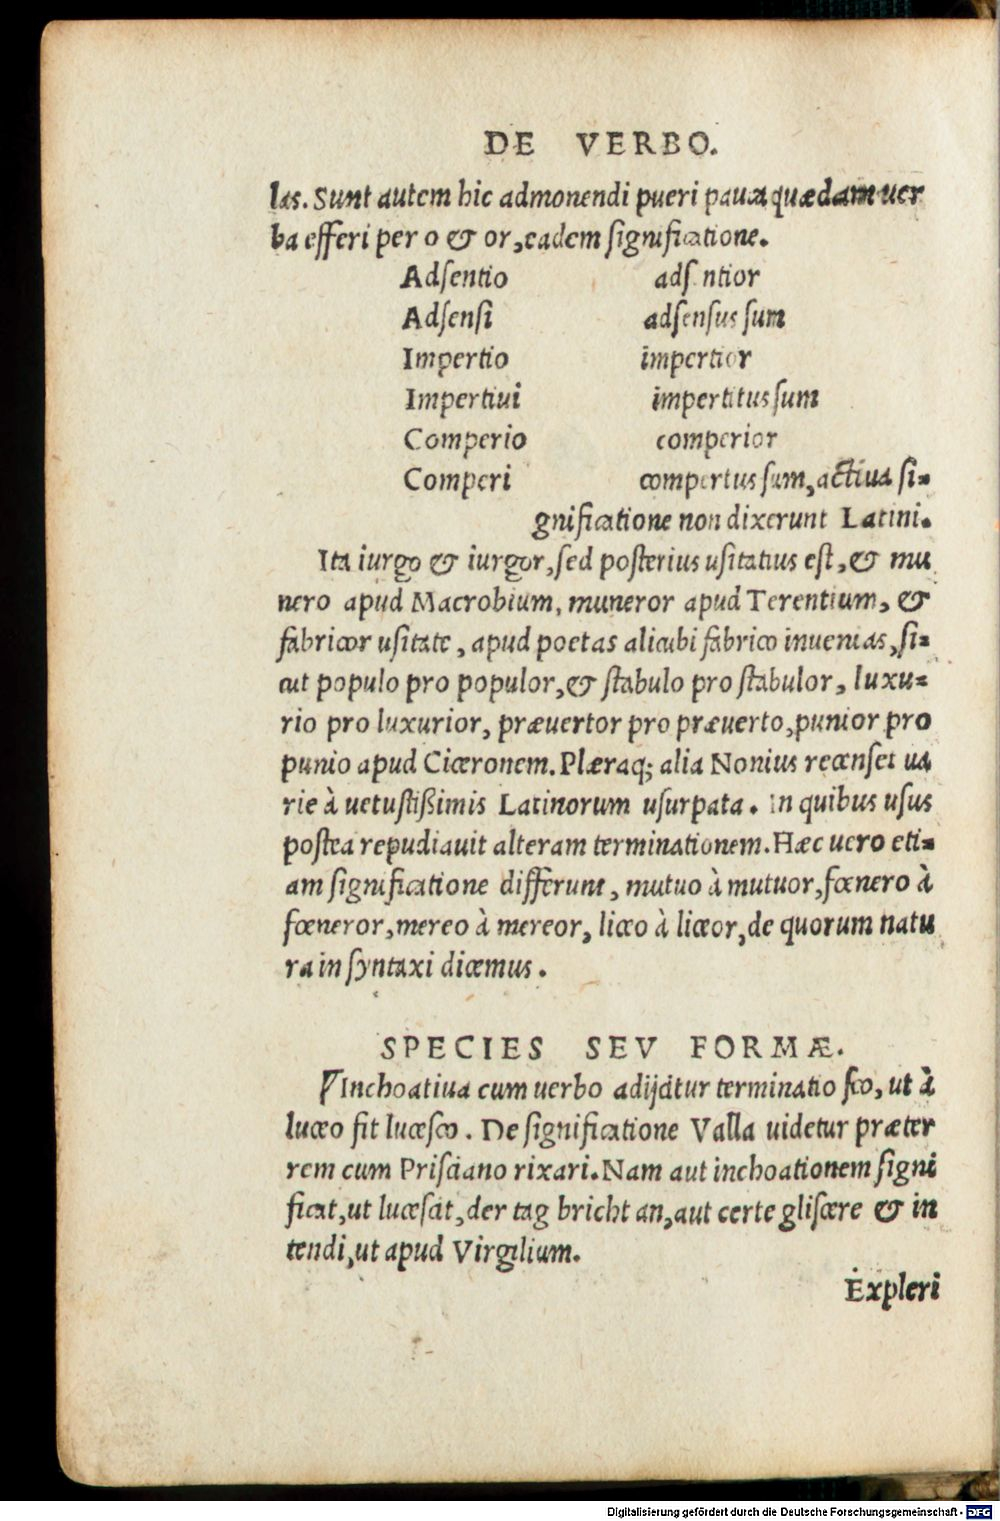 DE VERBO.
las. Sunt autem hic admonendi pueri pauca quædam uer
ba efferi per o & or, eadem significatione.
Adsentio adsentior
Adsensi adsensus sum
Impertio impertior
Impertiui impertitus sum
Comperio comperior
Comperi compertus sum, actiua si-
gnificatione non dixerunt Latini.
Ita iurgo & iurgor, sed posterius usitatius est, & mu
nero apud Macrobium, muneror apud Terentium, &
fabricor usitate, apud poetas alicubi fabrico inuenias, si-
cut populo pro populor, & stabulo pro stabulor, luxu-
rio pro luxurior, præuertor pro præuerto, punior pro
punio apud Ciceronem. Pleraq; alia Nonius recenset ua
rie à uetustißimis Latinorum usurpata. In quibus usus
postea repudiauit alteram terminationem. Hæc uero eti-
am significatione differunt, mutuo à mutuor, fœnero à
fœneror, mereo à mereor, liceo à liceor, de quorum natu
ra in syntaxi dicemus.
SPECIES SEV FORMÆ.
Inchoatiua cum uerbo adijcitur terminatio sco, ut à
luceo fit lucesco. De significatione Valla uidetur præter
rem cum Prisciano rixari. Nam aut inchoationem signi
ficat, ut lucescit, der tag bricht an, aut certe gliscere & in
tendi, ut apud Virgilium.
Expleri
Digitalisierung gefördert durch die Deutsche Forschungsgemeinschaft - DFG